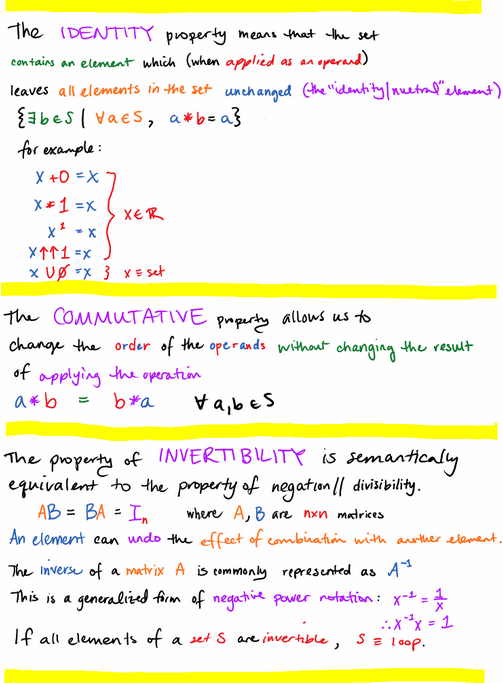 The IDENTITY property means that the set
contains an element which (when applied as an operand)
leaves all elements in the set unchanged (the "identity/nuetral" element)
{∃b∈S | ∀a∈S, a*b=a}
for example:
x+0=x
x*1=x
x¹=x
x↑↑1=x
} x∈ℝ
x∪∅=x } x≡set
The COMMUTATIVE property allows us to
change the order of the operands without changing the result
of applying the operation
a*b = b*a ∀a,b∈S
The property of INVERTIBILITY is semantically
equivalent to the property of negation// divisibility.
AB = BA = Iₙ where A, B are n×n matrices
An element can undo the effect of combination with another element.
The inverse of a matrix A is commonly represented as A⁻¹
This is a generalized form of negative power notation: x⁻¹ = 1/x
∴x⁻¹x = 1
If all elements of a set S are invertible, S ≡ loop.